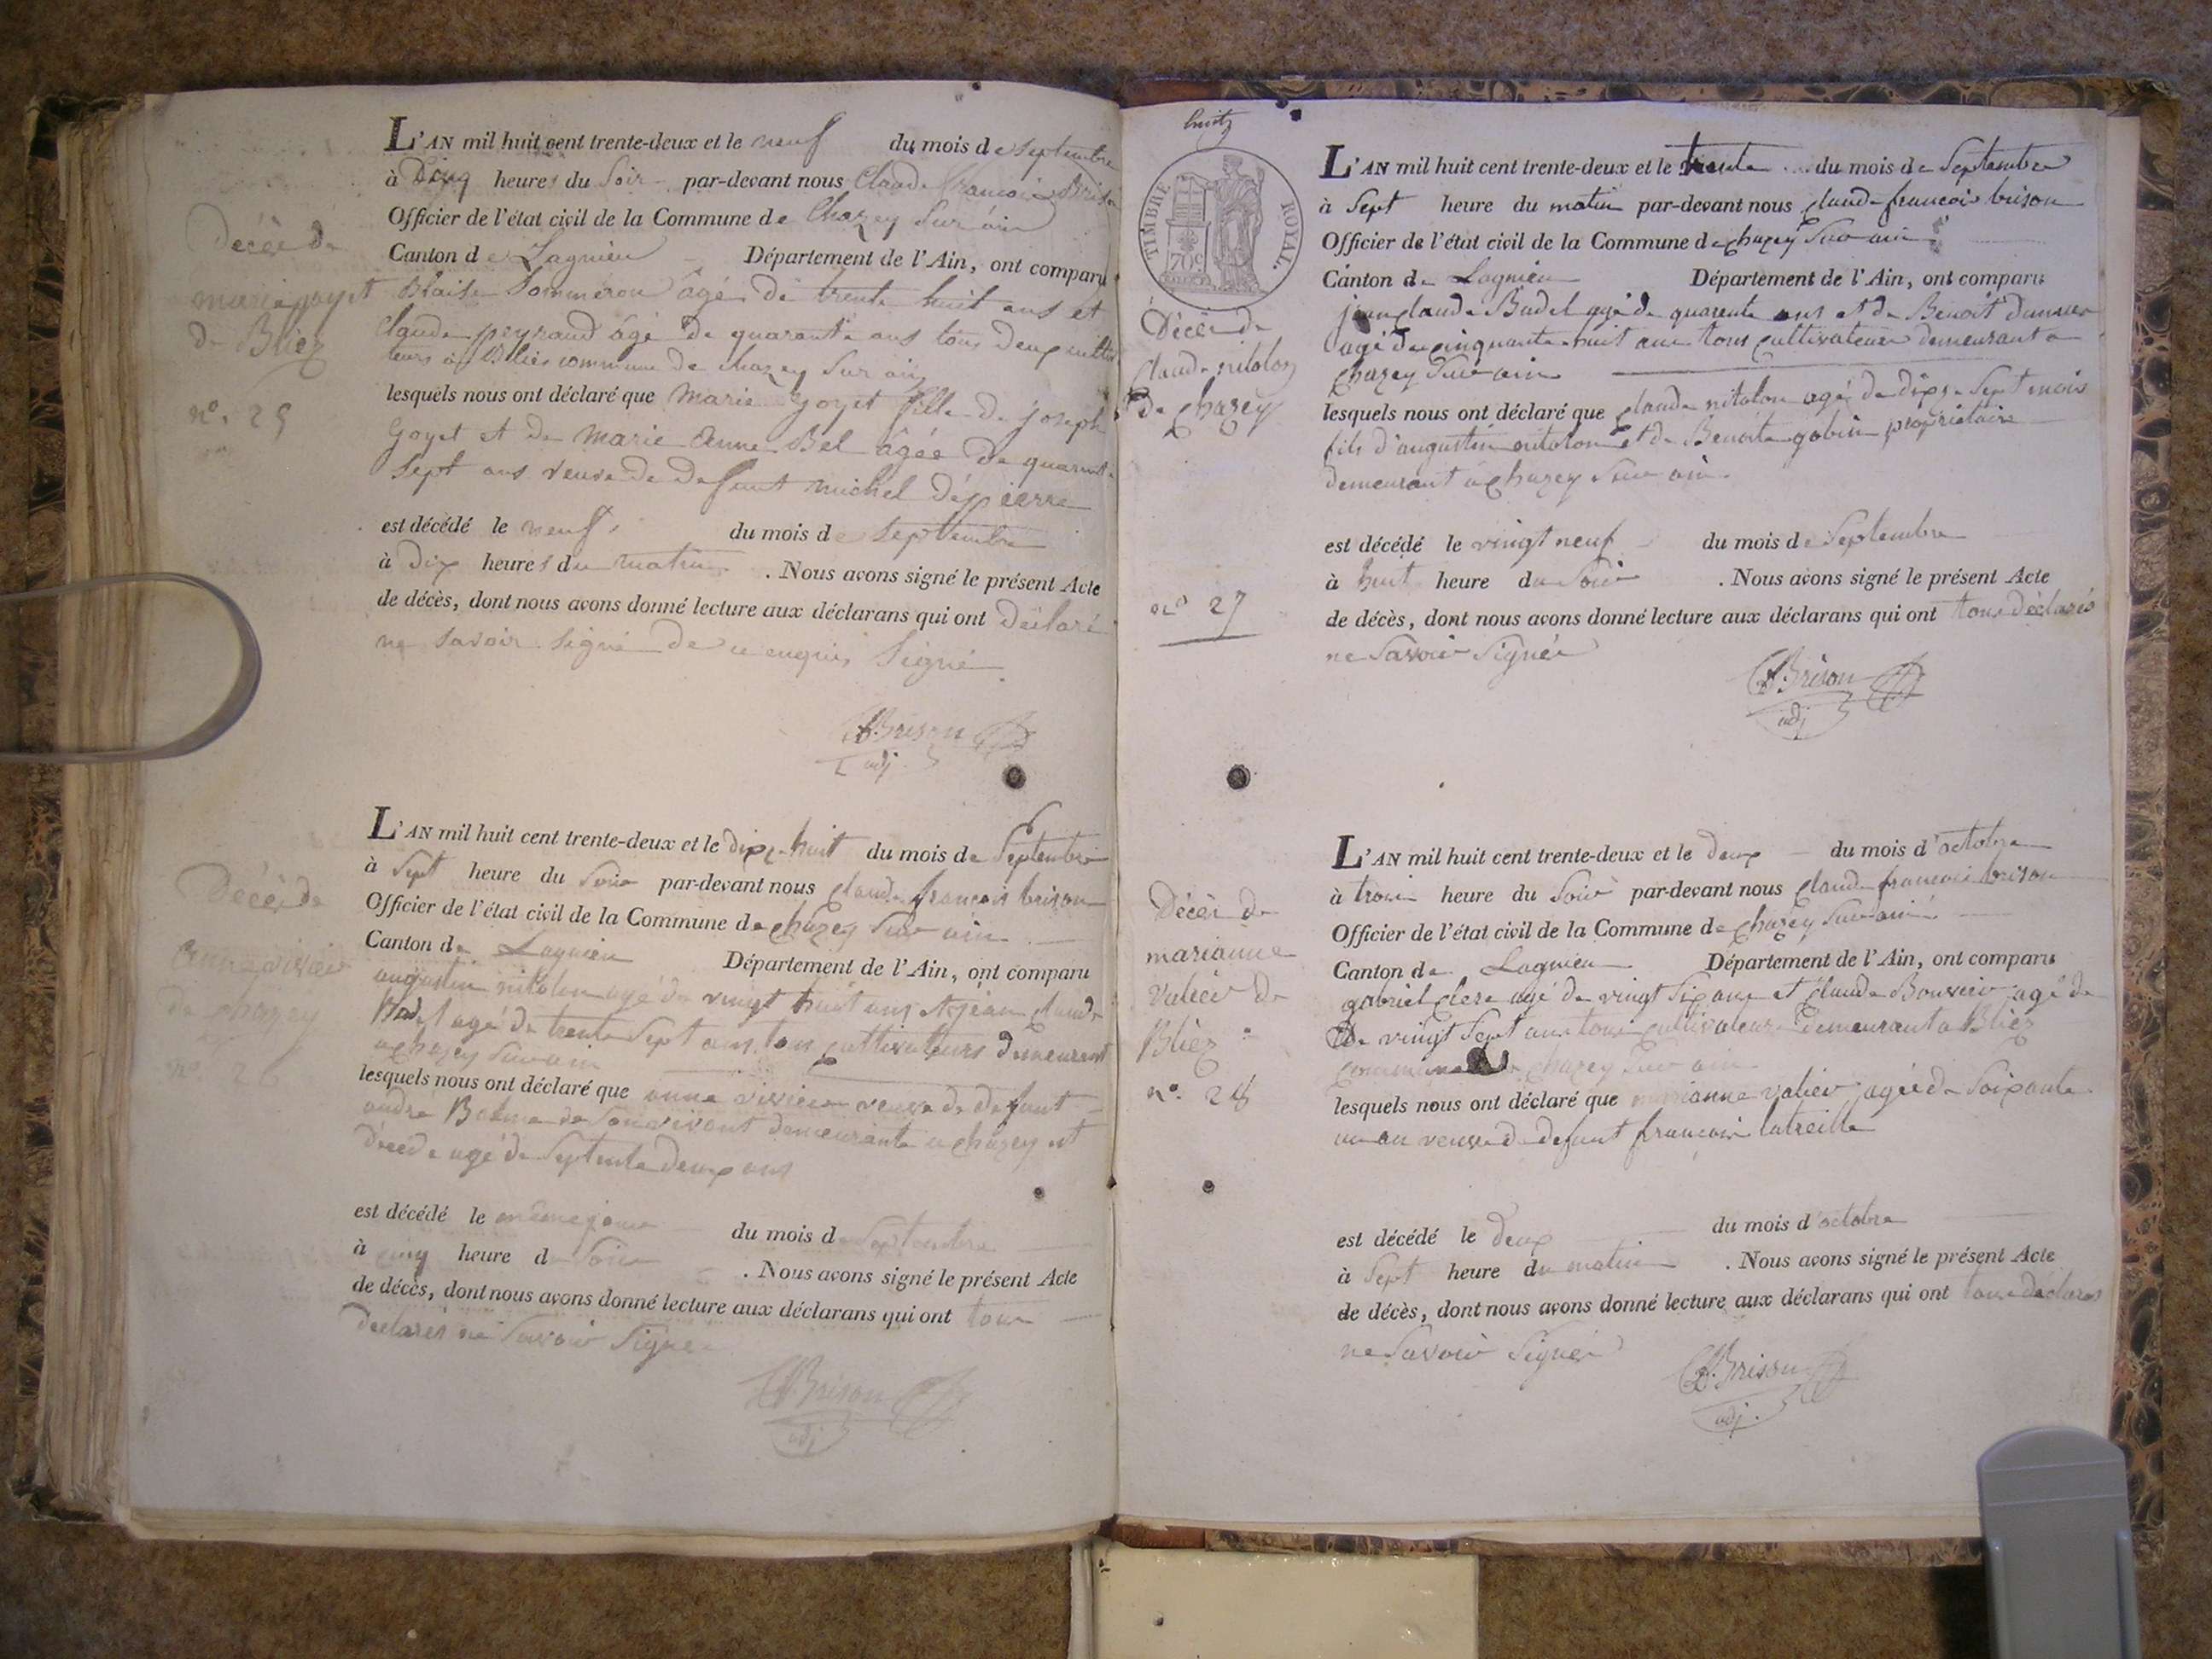 Décès de
marie goyet
de Bliez
n°. 25
L'AN mil huit cent trente-deux et le neuf du mois de septembre
à Cinq heures du Soir par-devant nous Claude francois Brison
Officier de l'état civil de la Commune de Chazey Sur ain
Canton de Lagnieu Département de l'Ain, ont comparu
Blaise Sommeron âgé de trente huit ans et
Claude peyraud âgé de quarante ans tous deux
à Bliés commune de chazey Sur ain
lesquels nous ont déclaré que Marie Goyet fille de joseph
Goyet et de Marie Anne Bel âgée de quarante
Sept ans veuve de defunt michel Dépierre
est décédé le neuf du mois de Septembre
à Dix heures du matin . Nous avons signé le présent Acte
de décès, dont nous avons donné lecture aux déclarans qui ont Déclaré
ne Savoir Signé de ce enquis Signé
Brison
adj.
Décès de
anne vivier
de chazey
n° 26
L'AN mil huit cent trente-deux et le dix-huit du mois de Septembre
à Sept heure du Soir par-devant nous Claude françois brison
Officier de l'état civil de la Commune de chazey Sur ain
Canton de Lagnieu Département de l'Ain, ont comparu
augustin nitolon agé de vingt huit ans et jean claude
Badel agé de trente Sept ans tous cultivateurs demeurent
a chazey Sur ain
lesquels nous ont déclaré que anne vivier veuve de defunt
andré de Son vivant demeurante a chazey et
décédé agé de Septente deux ans
est décédé le même jour du mois de Septembre
à cinq heure du Soir . Nous avons signé le présent Acte
de décès, dont nous avons donné lecture aux déclarans qui ont tous
declarés ne Savoir Signer
Brison
adj
huit
TIMBRE ROYAL.
70c
Décès de
claude nitolon
de chazey
n° 27
L'AN mil huit cent trente-deux et le trente du mois de Septembre
à Sept heure du matin par-devant nous claude francois brison
Officier de l'état civil de la Commune de chazey Sur ain
Canton de Lagnieu Département de l'Ain, ont comparu
jean claude Badel agé de quarente ans et de Benoit
agé de cinquante huit ans tous cultivateurs demeurant a
chazey Sur ain
lesquels nous ont déclaré que claude nitolon agé de dix-Sept mois
fils d'augustin nitolon et de Benoite gobin propriétaire
demeurant a chazey Sur ain
est décédé le vingt neuf du mois de Septembre
à huit heure du Soir . Nous avons signé le présent Acte
de décès, dont nous avons donné lecture aux déclarans qui ont tous déclarés
ne Savoir Signér
Brison
adj
Décès de
marianne
valier de
Bliez
n°. 28
L'AN mil huit cent trente-deux et le deux du mois d'octobre
à trois heure du Soir par-devant nous claude francois brison
Officier de l'état civil de la Commune de chazey Sur ain
Canton de Lagnieu Département de l'Ain, ont comparu
gabriel clere agé de vingt Six ans et claude Bouvier agé de
de vingt Sept ans tous cultivateurs demeurant a Bliez
commune de chazey Sur ain
lesquels nous ont déclaré que marianne valier agée de Soixante
un an veuve de defunt francois latreille
est décédé le deux du mois d'octobre
à Sept heure du matin . Nous avons signé le présent Acte
de décès, dont nous avons donné lecture aux déclarans qui ont tous déclares
ne Savoir Signér
Brison
adj.